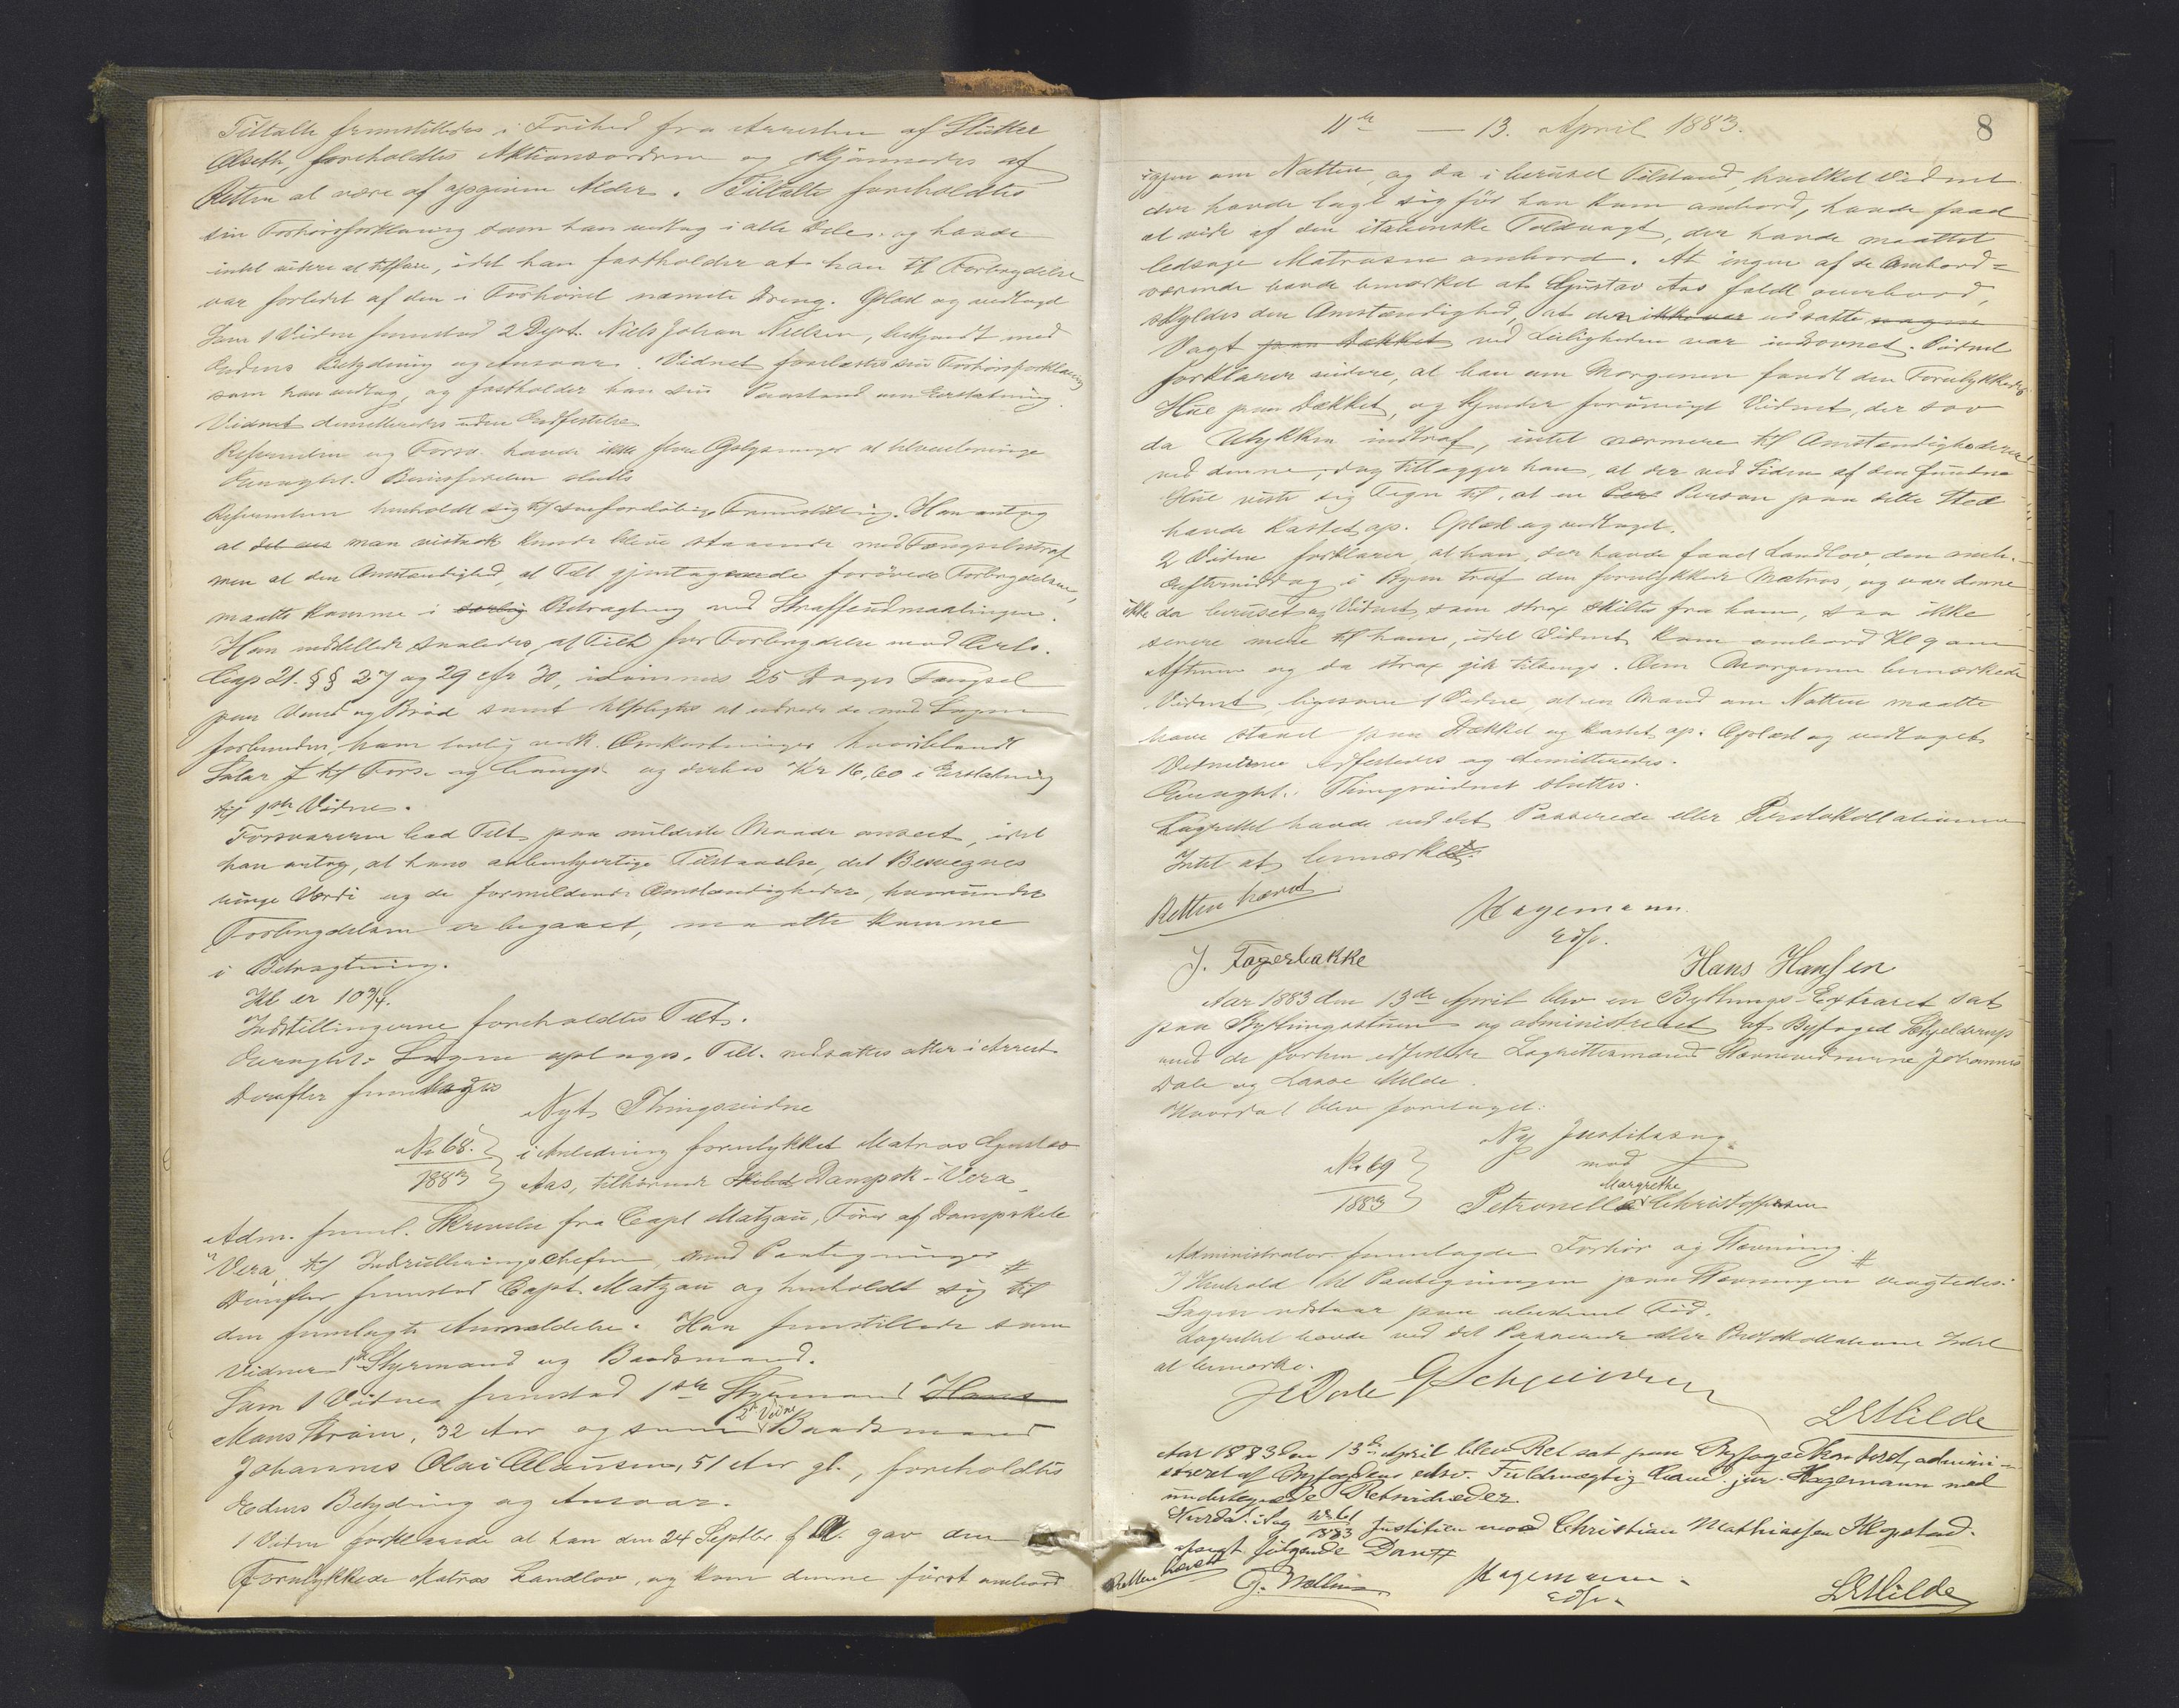 Tiltalte fremstilledes i Frihed fra Arresten af Slutter
Alseth, foreholdtes Aktionsordren og skjønnedes af
Retten at være af opgiven Alder. Tiltalte foreholdtes
sin Forhørsforklaring som han vedtog i alle Dele og havde
intet videre at tilføie, idet han fastholder at han til Forbrydelsen
var forledet af den i Forhøret nævnte Dreng. Oplæst og vedtaget
Som 1 Vidne fremstod 2 Dept. Niels Johan Nielsen, bekjendt med
Edens Betydning og Ansvar. Vidnet forelæstes sin Forhørsforklaring
som han vedtog, og fastholder han sin Paastand om Erstatning.
Vidnet demitteredes uden Edfestelse
Referenten og Forsv. havde ikke flere Oplysninger at tilveiebringe
Eragtet. Beviisførelsen sluttes
Referenten henholdt sig til sin foreløbige Fremstilling. Han antog
at det ved man vistnok kunde blive staaende med Fængselsstraf
men at den Omstændighed, at Tilt gjentagende forøvede Forbrydelsen,
maatte komme i særlig Betragtning ved Straffeudmaalingen.
Han indstillede saaledes, at Tilt for Forbrydelse mod Crls.
Cap 21. §§ 27 og 29 cfr 30, idømmes 25 Dages Fængsel
paa Vand og Brød samt tilpligtes at udrede de med Sagen
forbundne, ham lovlig Omkostninger hvoriblandt
Salær til Forsv og og derhos Kr 16,60 i Erstatning
til 1ste Vidne.
Forsvareren bad Tilt paa mildeste Maade anseet, idet
han antog, at hans aabenhjertige Tilstaaelse, det Besvegnes
ringe Værdi og de formildende Omstændigheder, hvorunder
Forbrydelsen er begaaet, maatte komme
i Betragtning.
Kl er 10 3/4.
Indstillingerne foreholdtes Tilt.
Eragtet: Sagen optages. Tilt. nedsættes atter i Arrest
Derefter fremtoges
Nyt Thingsvidne
No 68. i Anledning forulykket Matros Gustav
1883 Aas, tilhørende Skibet Dampsk. "Vera"
Adm. freml. Skrivelse fra Capt Matzau, Fører af Dampskibet
"Vera" til Indrulleringschefen, med Paategninger #
Derefter fremstod Capt. Matzau og henholdt sig til
den fremlagte Anmeldelse. Han fremstillede som
Vidner 1ste Styrmand og Baadsmand.
Som 1 Vidne fremstod 1ste Styrmand Hans
Mons Strøm, 32 Aar og som 2det Vidne Baadsmand
Johannes Olai Clausen, 51 Aar gl., foreholdtes
Edens Betydning og Ansvar.
1 Vidne forklarede at han den 24 Septbr f A. gav den
Forulykkede Matros Landlov, og kom denne først ombord
11te — 13. April 1883. 8
igjen om Natten, og da i beruset Tilstand, hvilket Vidnet
der havde lagt sig før han kom ombord, havde faaet
at vide af den italienske Toldvagt, der havde maattet
ledsage Matrosen ombord. At ingen af de Ombord=
værende havde bemærket at Gustav Aas faldt overbord,
skyldes den Omstændighed, at den ikke var udsatte nogen
Vagt paa Dækket ved Leiligheden var indsovnet. Vidnet
forklarer videre, at han om Morgenen fandt den Forulykkedes
Hue paa Dækket, og kjender forøvrigt Vidnet, der sov
da Ulykken indtraf, intet nærmere til Omstændighederne
ved denne, dog tillægger han, at der ved Siden af den fundne
Hue viste sig Tegn til, at en Pers Person paa dette Sted
havde kastet op. Oplæst og vedtaget.
2 Vidne forklarer, at han, der havde faaet Landlov den samme
Eftermiddag i Byen traf den forulykkede Matros, og var denne
ikke da beruset og Vidnet, som strax skiltes fra ham, saa ikke
senere mere til ham, idet Vidnet kom ombord Kl 9 om
Aftenen og da strax gik tilkøys. Om Morgenen bemærkede
Vidnet ligesom 1 Vidne, at en Mand om Natten maatte
have staaet paa Dækket og kastet op. Oplæst og vedtaget
Vidnerne edfæstedes og demitteredes.
Eragtet: Thingsvidnet sluttes.
Lagrettet havde ved det Passerede eller Protokollationen
Intet at bemærke.
Retten hævet
Hagemann
Edsv.
J. Fagerbakke Hans Hansen
Aar 1883 den 13de April blev en Bythings-Extraret sat
paa Bythingsstuen og administreret af Byfoged Schjelderup
med de forhen edfæstede Lagrettesmænd Stævnevidnerne Johannes
Dale og Lasse Milde.
Hvorda blev foretaget:
Ny Justitssag
No 69 mod
1883 Petronelle Margrethe Christoffersen
Administrator fremlagde Forhør og Stævning. #
I Henhold til Paategningen paa Stævningen eragtedes:
Sagen udstaar paa ubestemt Tid.
Lagrettet havde ved det Passerede eller Protokollationen Intet
at bemærke.
J Dale GSchjelderup
LEMilde
Aar 1883 den 13de April blev Ret sat paa Byfogedkontoret, admini=
streret af Byfogdens edsv. Fuldmægtig Cand. jur. Hagemann med
undertegnede Retsvidner
Hvorda i Sag 1883 Justitien mod Christian Mathiassen Klopstad.
afsagt følgende Dom #
Retten hævet
J. Wallin Hagemann
Edsv. LEMilde